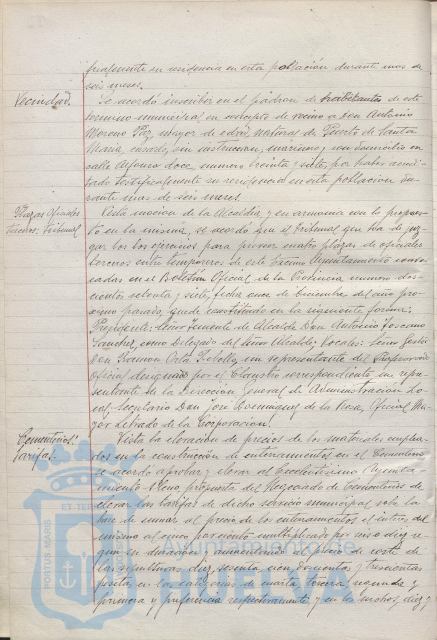 ficalmente su residencia en esta población durante mas de
seis meses.
Vecindad.
Se acordó inscribir en el padrón de habitantes de este
termino municipal en concepto de vecino a Don Antonio
Moreno Paz, mayor de edad, natural de Puerto de Santa
Maria, casado, sin instruccion, marinero, con domicilio en
calle Alfonso doce, numero treinta y siete, por haber acredi-
tado testificalmente su residencia en esta poblacion du-
rante mas de seis meses.
Plazas Oficiales
terceros. Tribunal
Vista mocion de la Alcaldia, y en armonia con lo propues-
to en la misma, se acordó que el tribunal que ha de juz-
gar los ejercicios para proveer cuatro plazas de oficiales
terceros entre temporeros de este Excmo Ayuntamiento convo-
cadas en el Boletin Oficial de la Provincia numero dos-
cientos setenta y siete, fecha once de diciembre del año pro-
ximo pasado, quede constituido en la siguiente forma:
Presidente: Señor Teniente de Alcalde Don Antonio Toscano
Sanchez, como Delegado del Señor Alcalde; Vocales: Señor Gestor
Don Ramon, un representante del Profesorado
Oficial designado por el Claustro correspondiente, un repre-
sentante de la Direccion General de Administracion Lo-
cal, Secretario Don Jose de la, Oficial Ma-
yor Letrado de la Corporacion.
Cementerios.
Tarifas.
Vista la elevacion de precios de los materiales emplea-
dos en la construccion de enterramientos en el Cementerio
se acordó aprobar y elevar al Excelentisimo Ayunta-
miento Pleno, propuesta del Negociado de Cementerios de
elevar las tarifas de dicho servicio municipal sobre la
base de sumar al precio de los enterramientos el interes del
mismo al cinco por ciento multiplicado por cinco o diez se-
gun su duracion y aumentando al precio de coste de
las sepulturas diez, sesenta, cien, doscientas y trescientas
pesetas en las categorias de cuarta, tercera, segunda y
primera y preferencia respectivamente, y en los nichos, diez y
PORTUS MARIS
ET TER
Ayuntamiento de
HUELVA